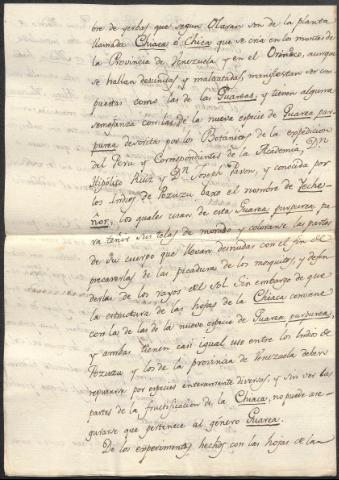 bre de yerbas que segun Olazan son de la planta
llamada Chiaca ó Chica que se cria en los montes de
la Provincia de Venezuela y en el Orinoco, aunque
se hallan desunidas y maltratadas, manifiestan ser com
puestas como las de las Guareas, y tienen alguna
semejanza con las de la nueva especie de Guarea pur
purea descrita por los Botanicos de la expedicion
del Peru y Correspondientes de la Academia, Dn
Hipólito Ruiz y Dn Joseph Pavon, y conocida por
los Indios de Pozuzu baxo el nombre de
los quales usan de esta Guarea purpurea pa
ra teñir sus telas de mundo y colorarse las partes
de su cuerpo que llevan desnudas con el fin de
precaverlas de las picaduras de los mosquitos, y defen
derlas de los rayos del Sol. Sin embargo de que
la estructura de las hojas de la Chiaca conviene
con las de la nueva especie de Guarea purpurea,
y ambas tienen casi igual uso entre los Indios de
Pozuzu y los de la provincia de Venezuela deben
reputarse por especies enteramente diversas, y sin ver las
partes de la fructificacion de la Chiaca, no puede ase
gurarse que pertenece al género Guarea.
De los experimentos hechos con las hojas de la